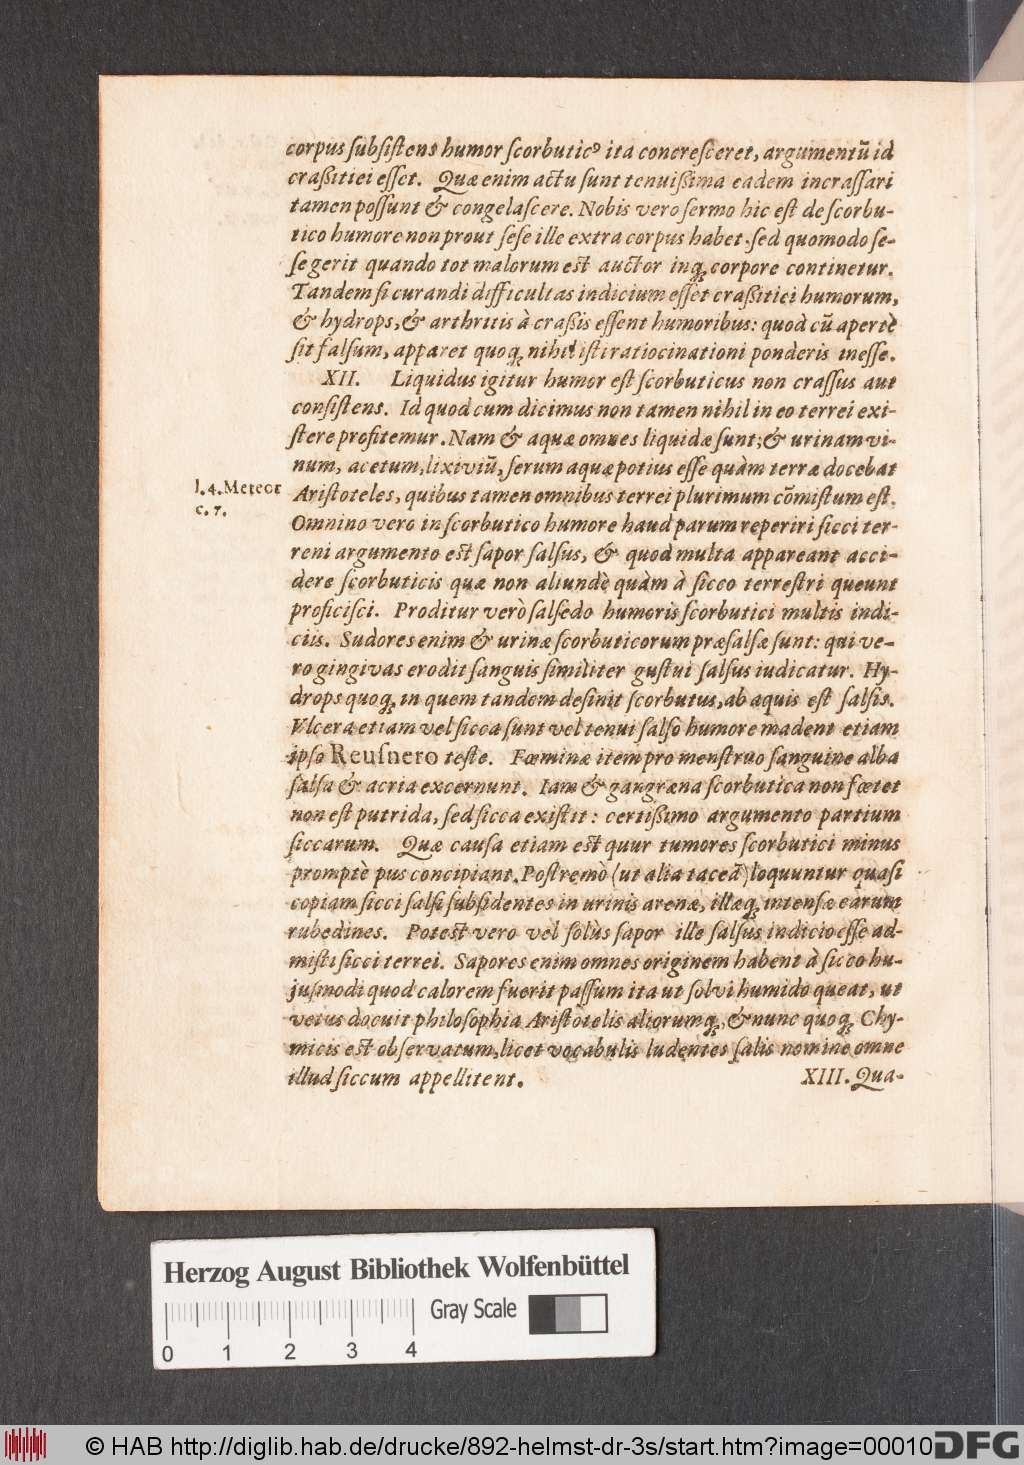 corpus ſubſiſtens humor ſcorbuticꝰ ita concreſceret, argumentū id
craßitiei eſſet. Quæ enim actu ſunt tenuißima eadem incraſſari
tamen poſſunt & congelaſcere. Nobis vero ſermo hic eſt de ſcorbu-
tico humore non prout ſeſe ille extra corpus habet, ſed quomodo ſe-
ſe gerit quando tot malorum est auctor inq; corpore continetur.
Tandem ſi curandi difficultas indicium eſſet craßitiei humorum,
& hydrops, & arthritis à craßis eſſent humoribus: quod cū apertè
ſit falſum, apparet quoq; nihil iſti ratiocinationi ponderis ineſſe.
XII. Liquidus igitur humor eſt ſcorbuticus non craſſus aut
conſiſtens. Id quod cum dicimus non tamen nihil in eo terrei exi-
ſtere profitemur. Nam & aquæ omnes liquidæ ſunt; & urinam vi-
num, acetum, lixiviū, ſerum aquæ potius eſſe quàm terræ docebat
l. 4. Meteor
c. 7.
Ariſtoteles, quibus tamen omnibus terrei plurimum cōmiſtum eſt.
Omnino vero in ſcorbutico humore haud parum reperiri ſicci ter-
reni argumento est ſapor ſalſus, & quod multa appareant acci-
dere ſcorbuticis quæ non aliundè quàm à ſicco terreſtri queunt
proficiſci. Proditur verò ſalſedo humoris ſcorbutici multis indi-
ciis. Sudores enim & urinæ ſcorbuticorum præſalſæ ſunt: qui ve-
ro gingivas erodit ſanguis ſimiliter guſtui ſalſus iudicatur. Hy-
drops quoq; in quem tandem deſinit ſcorbutus, ab aquis eſt ſalſis.
Vlcera etiam vel ſicca ſunt vel tenui ſalſo humore madent etiam
ipſo Reuſnero teſte. Fœminæ item pro menſtruo ſanguine alba
ſalſa & acria excernunt. Iam & gangræna ſcorbutica non fœtet
non eſt putrida, ſed ſicca exiſtit: certißimo argumento partium
ſiccarum. Quæ cauſa etiam est quur tumores ſcorbutici minus
promptè pus concipiant. Poſtremò (ut alia taceā) loquuntur quaſi
copiam ſicci ſalſi ſubſidentes in urinis arenæ, illæq; intenſæ earum
rubedines. Potest vero vel ſolùs ſapor ille ſalſus indicio eſſe ad-
miſti ſicci terrei. Sapores enim omnes originem habent à ſicco hu-
juſmodi quod calorem fuerit paſſum ita ut ſolvi humido queat, ut
vetus docuit philoſophia Ariſtotelis aliorumq;, & nunc quoq; Chy-
micis est obſervatum, licet vocabulis ludentes ſalis nomine omne
illud ſiccum appellitent.
XIII. Qua-
Herzog August Bibliothek Wolfenbüttel
Gray Scale
0 1 2 3 4
© HAB http://diglib.hab.de/drucke/892-helmst-dr-3s/start.htm?image=00010
DFG